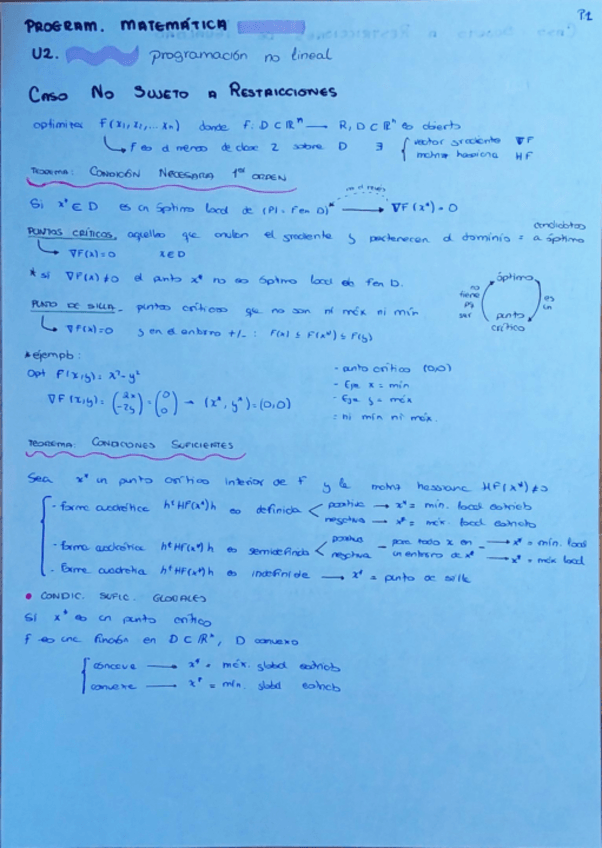 P1
PROGRAM. MATEMÁTICA
U2. programación no lineal
CASO NO SUJETO A RESTRICCIONES
optimizar F(x₁, x₂, ... xₙ) donde F: D ⊂ ℝⁿ → R, D ⊂ ℝⁿ es abierto
↳ F es al menos de clase 2 sobre D ∃ { vector gradiente ∇F
matriz hessiana HF
TEOREMA: CONDICIÓN NECESARIA 1er ORDEN
no al revés
Si x* ∈ D es un óptimo local de (P) = F en D)* → ∇F(x*) = 0
PUNTOS CRÍTICOS, aquellos que anulan el gradiente y pertenecen al dominio = candidatos a óptimo
↳ ∇F(x)=0 x∈D
* si ∇F(x) ≠ 0 el punto x* no es óptimo local de F en D.
óptimo
no tiene pq ser
es un
punto crítico
PUNTO DE SILLA - puntos críticos que no son ni máx ni mín
↳ ∇F(x)=0 y en el entorno +/- : F(x) ≤ F(x*) ≤ F(y)
* ejemplo:
Opt F(x,y) = x² - y²
∇F(x,y) = (2x -2y) = (0 0) → (x*, y*) = (0,0)
- punto crítico (0,0)
- Eje x = mín
- Eje y = máx
= ni mín ni máx.
TEOREMA: CONDICIONES SUFICIENTES
Sea x* un punto crítico interior de F y la matriz hessiana HF(x*) ≠ 0
- forma cuadrática hᵗHF(x*)h es definida < positiva → x* = mín. local estricto
negativa → x* = máx. local estricto
- forma cuadrática hᵗHF(x*)h es semidefinida < positiva - para todo x en → x* = mín. local
negativa un entorno de x* → x* = máx local
- forma cuadrática hᵗHF(x*)h es indefinida → x* = punto de silla
• CONDIC. SUFIC. GLOBALES
Si x* es un punto crítico
f es una función en D ⊂ ℝⁿ, D convexo
{ cóncava → x* = máx. global estricto
convexa → x* = mín. global estricto